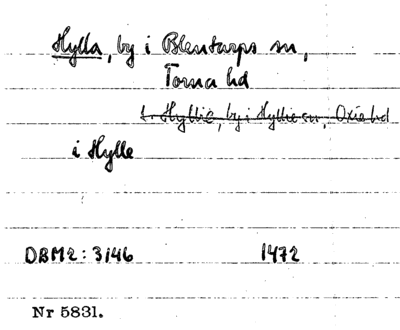 Hylla, by i Blentarps sn,
Torna hd
t. Hyllie, by i Hyllie sn, Oxie hd
i Hylle
DBM2:3/46 1472
Nr 5831.